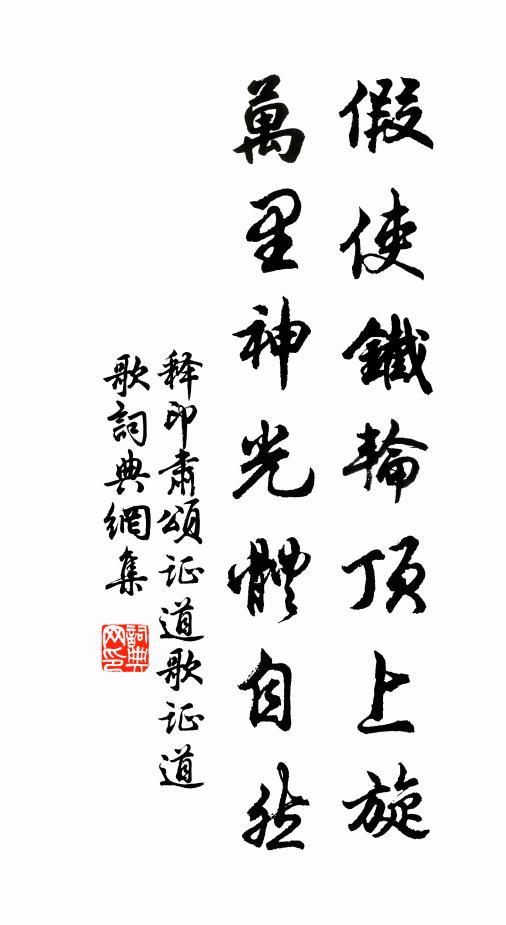 假使鐵輪頂上旋
萬里神光體自然
释印肃頌证道歌证道
歌詞典網集
詞典
网印